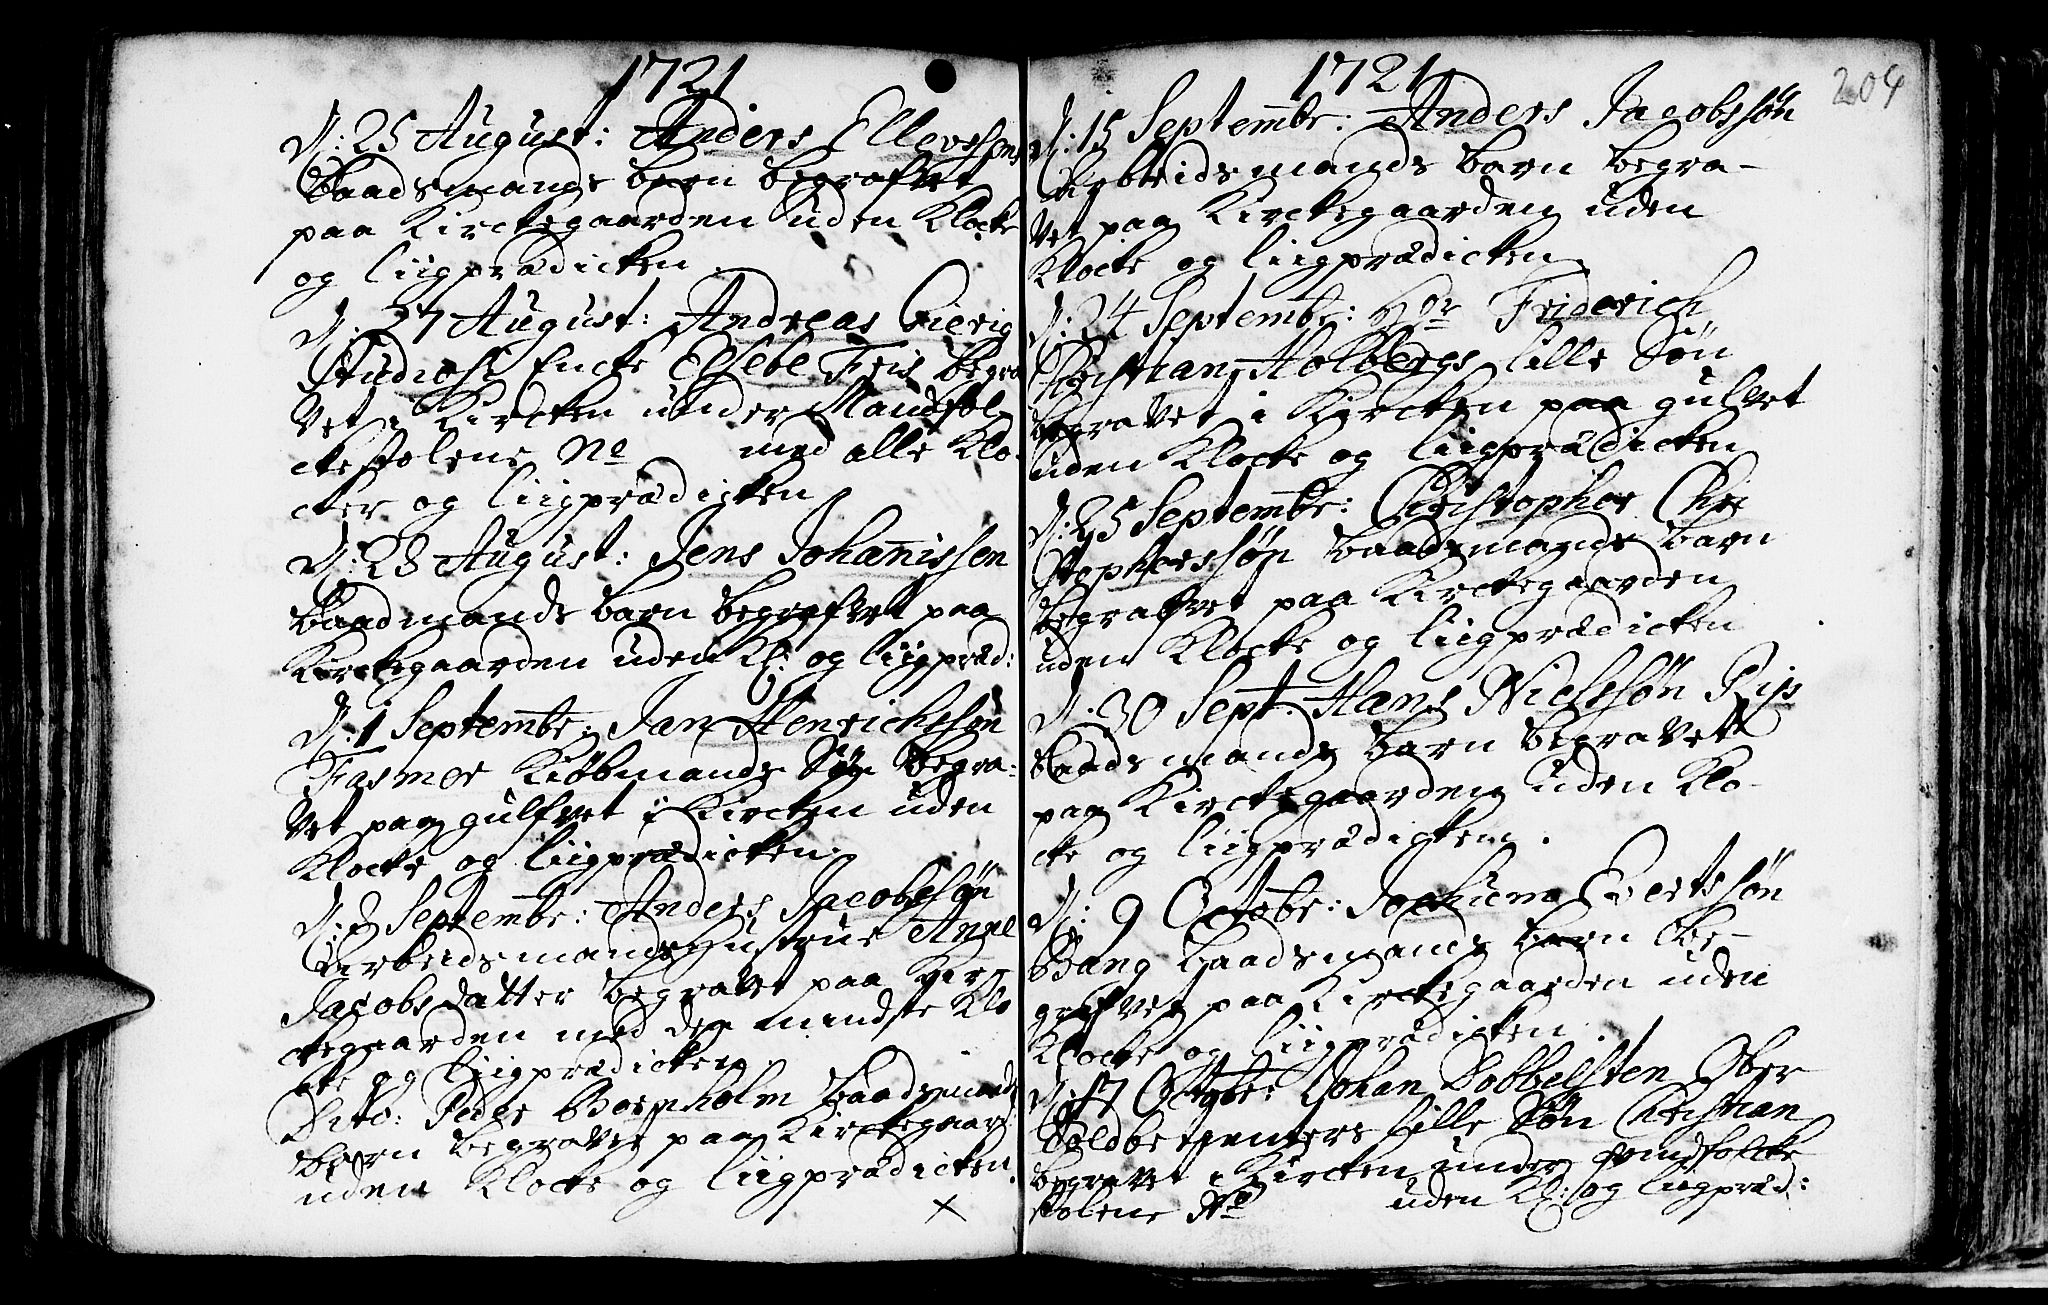 1721
d: 25 August: Anders Ellevssøns
Baadsmands barn begrafvet
paa Kirckegaarden uden Klocke
og liigprædicken
d. 27 August: Andreas Gierig
Studiosi Encke Elsebe Friis begra
vet i Kircken under Mandfol
ckestolene No med alle Klo
cker og liigprædicken
d: 28 August: Jens Johannissen
Baadmands barn begrafvet paa
Kirckegaarden uden Kl: og liigpræd:
d: 1 Septembr: Jan Henrichssøn
Fasmer Kiøbmands Søn begra-
vet paa gulfvet i Kircken uden
Klocke og liigprædicken
d: 3 Septembr: Anders Jacobssøn
Arbeidsmands Hustrue Anne
Jacobsdatter begravet paa Kir
ckegaarden med den mindste Klo
cke og liigprædicken
Dito: Peder Bornholm Baadsmands
barn begravet paa Kirckegaar:
uden Klocke og liigprædicken.
1721
204
d. 15 Septembr: Anders Jacobssøn
Arbeidsmands barn begra-
vet paa Kirckegaarden uden
Klocke og liigprædicken
d: 24 Septembr: Hr Friderich
Christian Holbergs lille Søn
begravet i Kircken paa gulvet
uden Klocke og liigprædicken
d: 25 Septembr: Christopher Chri
stopherssøn Baadsmands barn
begrafvet paa Kirckegaarden
uden Klocke og liigprædicken
d. 30 Sept. Hans Nielssøn Riis
Baadsmands barn begravett
paa Kirckegaarden uden Klo-
cke og liigprædicken.
d: 9 Octobr: Jochum Evertssøn
Bang Baadsmands barn be-
grafvet paa Kirckegaarden uden
Klocke og liigprædicken
d: 17 Octobr: Johan Dobbelsten Ober
Toldbetienters lille Søn Christian
begravet i Kircken under qvindfolcke
stolene No uden Kl: og liigpræd: